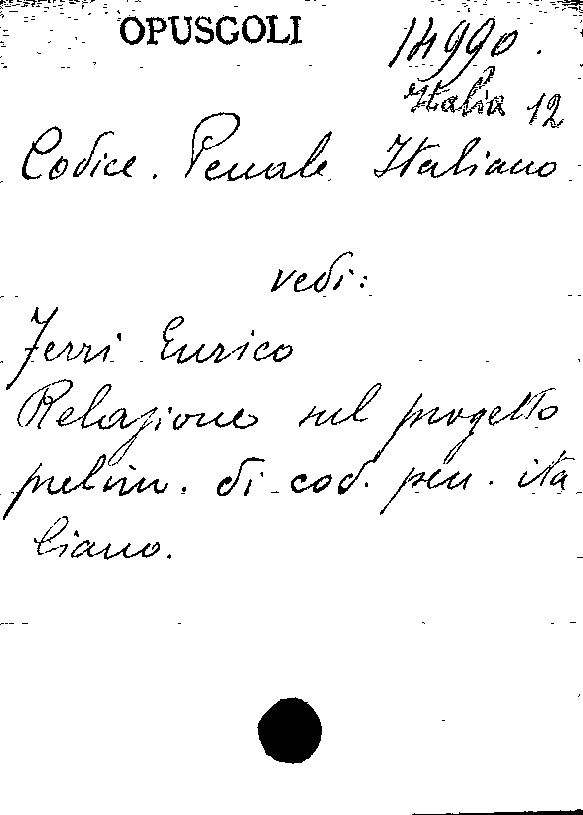 OPUSCOLI
14990.
Italia 12
Codice Penale Italiano
vedi:
Ferri Enrico
Relazione sul progetto
prelim. di cod. pen. ita
liano.